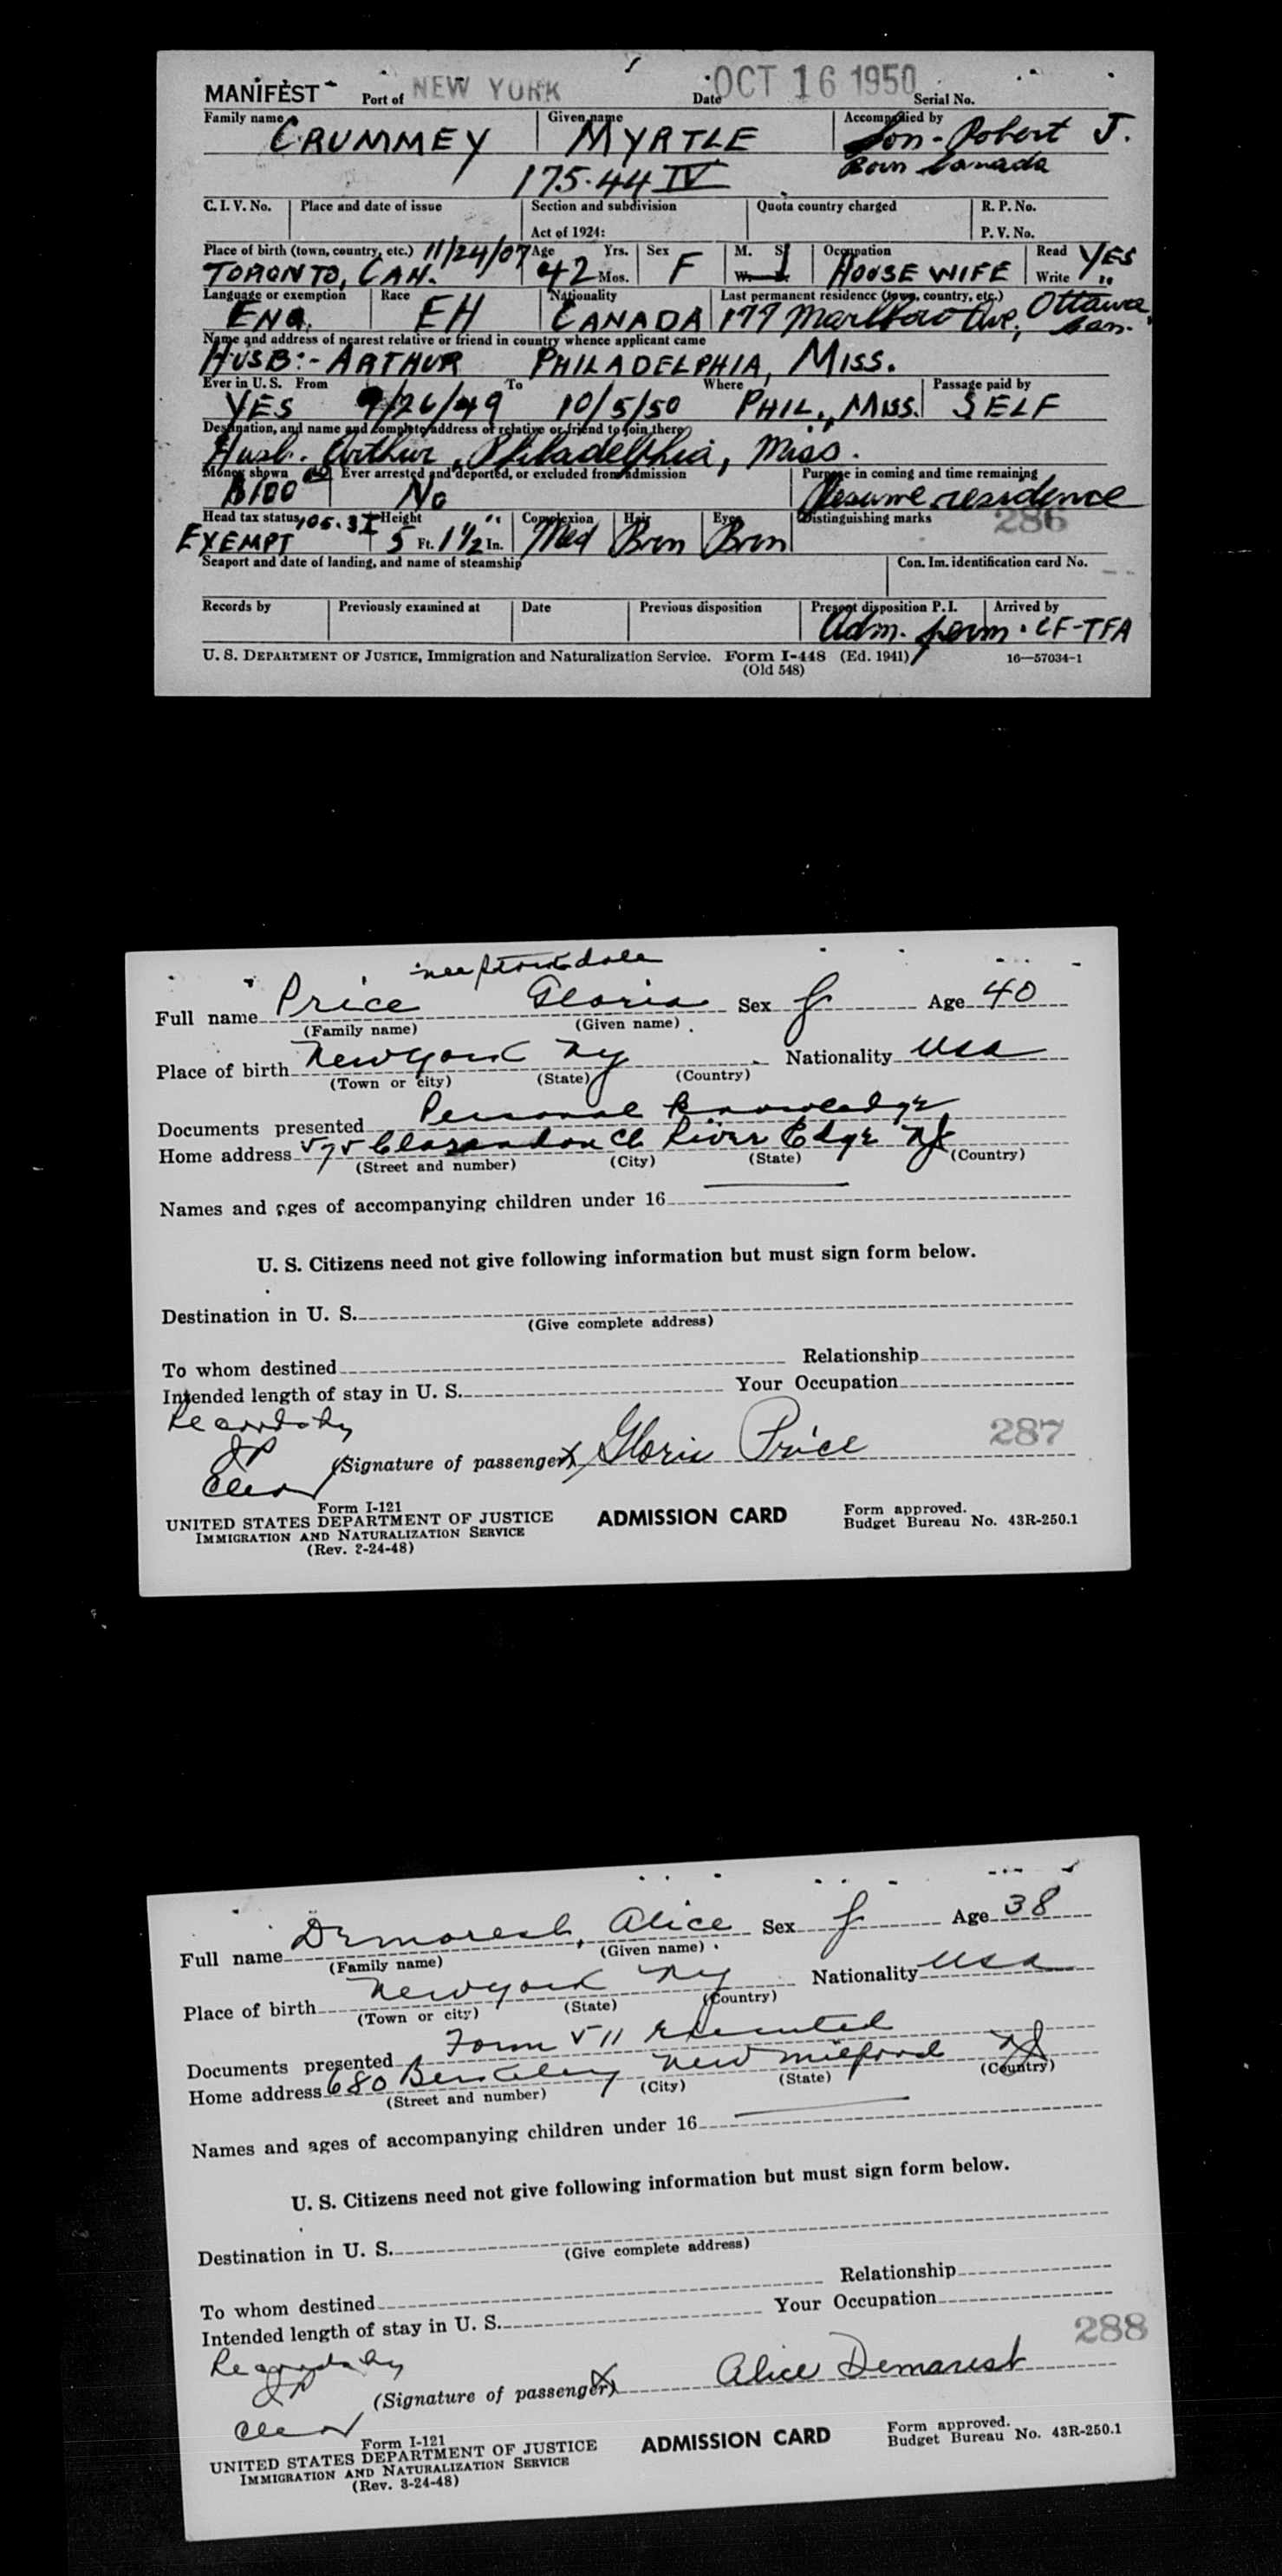 MANIFEST Port of NEW YORK Date OCT 16 1950 Serial No.
Family name CRUMMEY Given name MYRTLE Accompanied by Son - Robert J.
Born Canada
175.44 IV
C. I. V. No. Place and date of issue Section and subdivision Quota country charged R. P. No.
Act of 1924: P. V. No.
Place of birth (town, country, etc.) 11/24/07 Age Yrs. Sex M. S. Occupation Read YES
TORONTO, CAN. 42 Mos. F W. HOUSE WIFE Write "
Language or exemption Race Nationality Last permanent residence (town, country, etc.) Ottawa,
ENG. EH CANADA 177 Marlboro Ave, Can.
Name and address of nearest relative or friend in country whence applicant came
HUSB:- ARTHUR PHILADELPHIA, MISS.
Ever in U. S. From To Where Passage paid by
YES 9/26/49 10/5/50 PHIL., MISS. SELF
Destination, and name and complete address of relative or friend to join there
Husb. Arthur, Philadelphia, Miss.
Money shown Ever arrested and deported, or excluded from admission Purpose in coming and time remaining
$100 No Resume residence
Head tax status 105.3I Height Complexion Hair Eyes Distinguishing marks 286
EXEMPT 5 Ft. 1 1/2 In. Med Brn Brn
Seaport and date of landing, and name of steamship Con. Im. identification card No.
Records by Previously examined at Date Previous disposition Present disposition P. I. Arrived by
Adm. perm. CF-TFA
U. S. DEPARTMENT OF JUSTICE, Immigration and Naturalization Service. Form I-448 (Ed. 1941) 16—57034-1
(Old 548)
nee
Full name Price Gloria Sex f Age 40
(Family name) (Given name)
Place of birth New York NY Nationality USA
(Town or city) (State) (Country)
Documents presented Personal Knowledge
Home address 575 Clarendon Ct River Edge NJ
(Street and number) (City) (State) (Country)
Names and ages of accompanying children under 16
U. S. Citizens need not give following information but must sign form below.
Destination in U. S.
(Give complete address)
To whom destined Relationship
Intended length of stay in U. S. Your Occupation
287
(Signature of passenger) X Gloria Price
Form I-121
UNITED STATES DEPARTMENT OF JUSTICE ADMISSION CARD Form approved.
IMMIGRATION AND NATURALIZATION SERVICE Budget Bureau No. 43R-250.1
(Rev. 2-24-48)
Full name Demarest, Alice Sex f Age 38
(Family name) (Given name)
Place of birth New York NY Nationality USA
(Town or city) (State) (Country)
Documents presented Form 511 Executed
Home address 680 Berkeley New Milford NJ
(Street and number) (City) (State) (Country)
Names and ages of accompanying children under 16
U. S. Citizens need not give following information but must sign form below.
Destination in U. S.
(Give complete address)
To whom destined Relationship
Intended length of stay in U. S. Your Occupation
288
(Signature of passenger) X Alice Demarest
Form I-121
UNITED STATES DEPARTMENT OF JUSTICE ADMISSION CARD Form approved.
IMMIGRATION AND NATURALIZATION SERVICE Budget Bureau No. 43R-250.1
(Rev. 3-24-48)